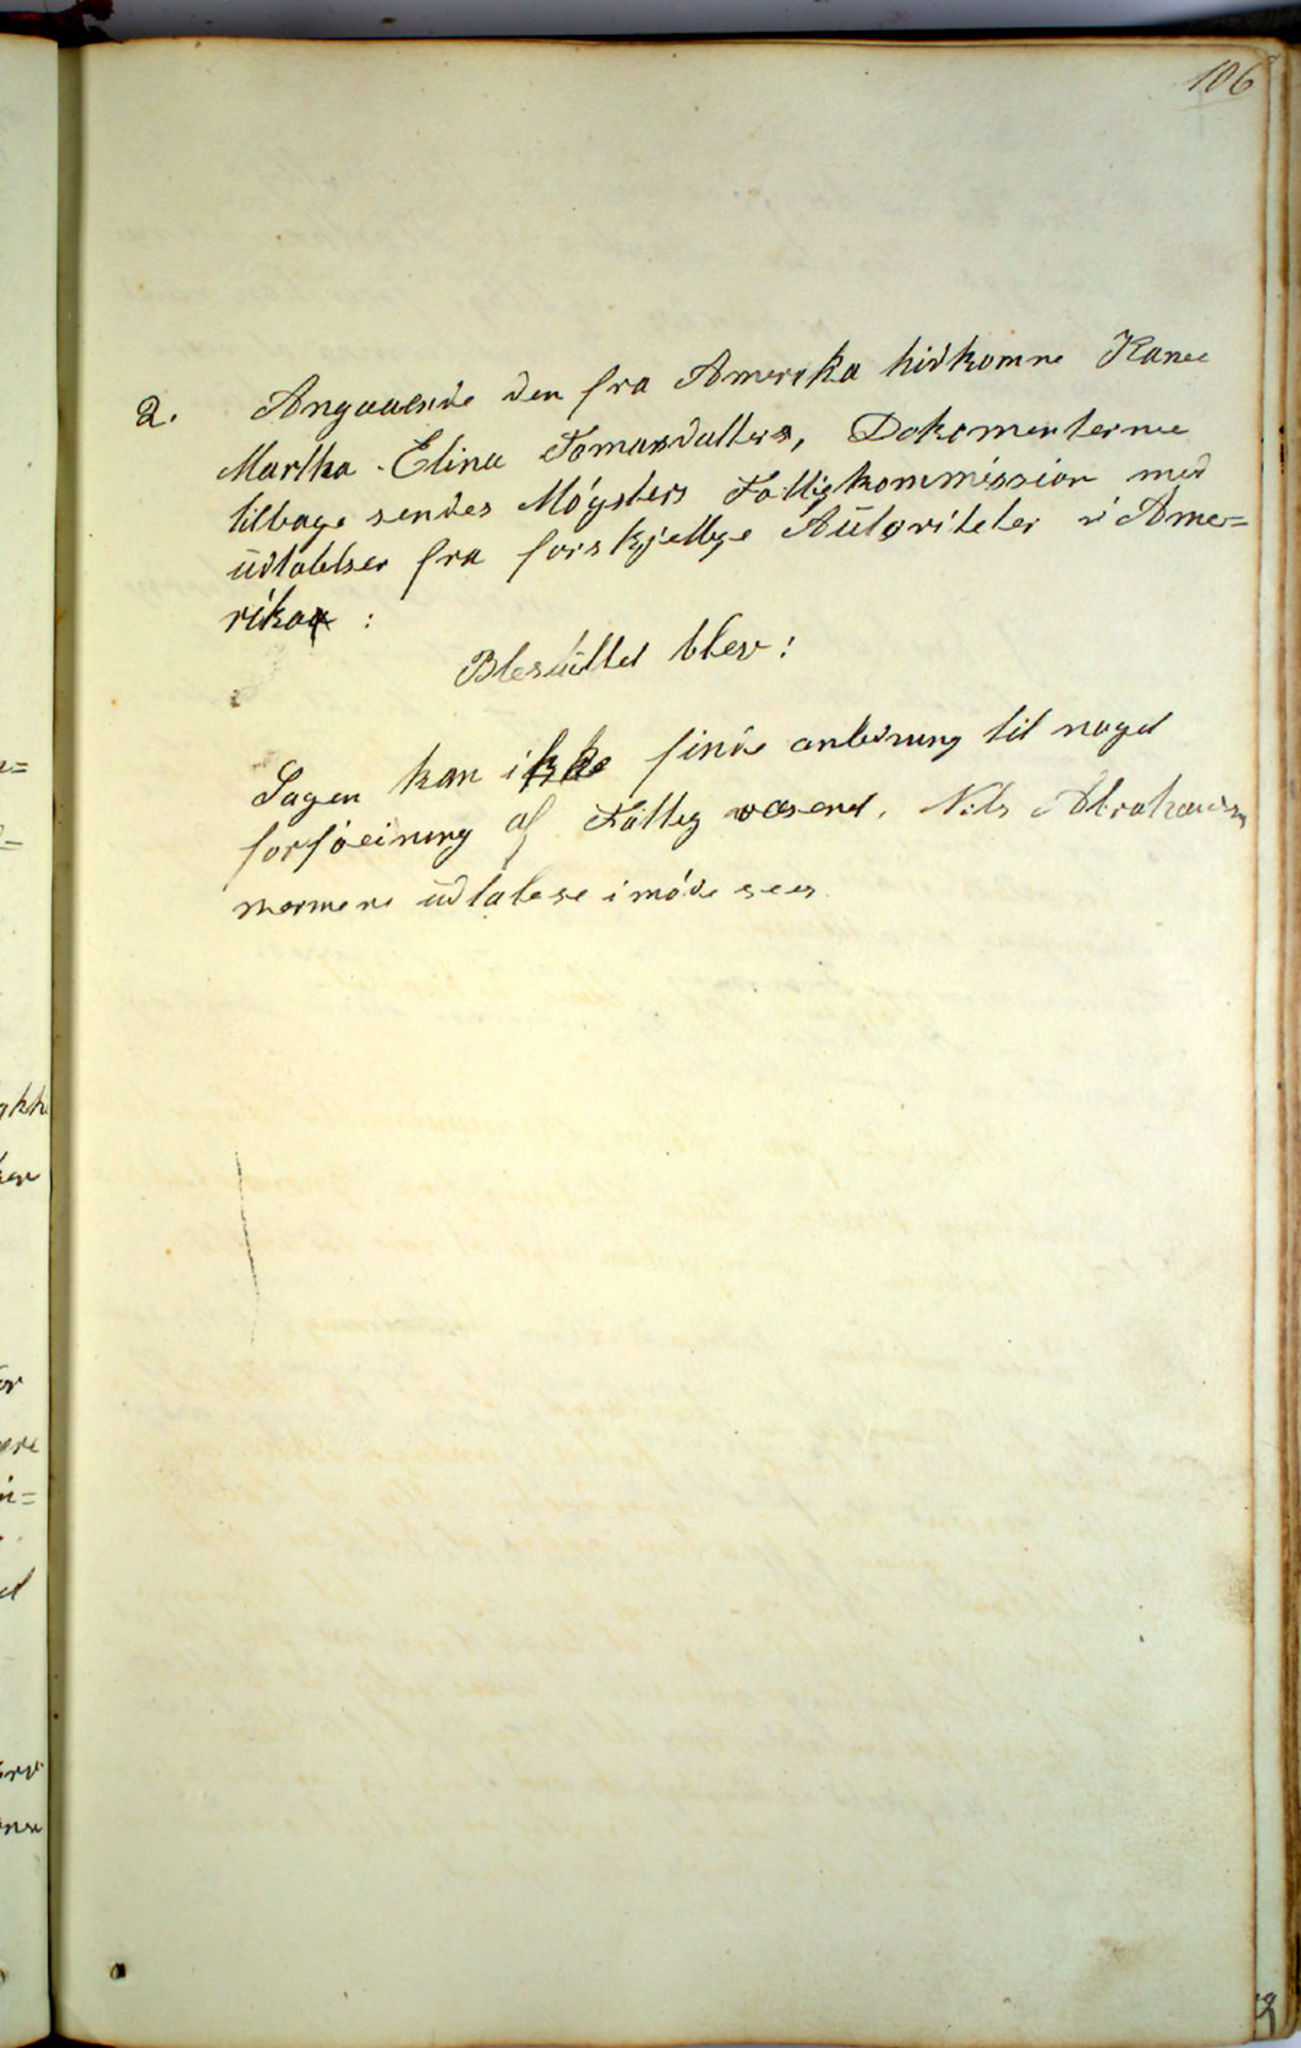 106
2. Angaaende den fra Amerika hidkomne Kane
Martha Elina Tomasdatters, Dokomenterne
tilbage sendes Møgsters Fattigkommission med
üdtalelser fra forskjellige Aütoriteter i Ame=
rika :
Besluttet blev:
Sagen kan ikke finde anledning til noget
forføining af Fattig væsend. Nils Abrahamsen
nærmere üdtalese imøde sees.